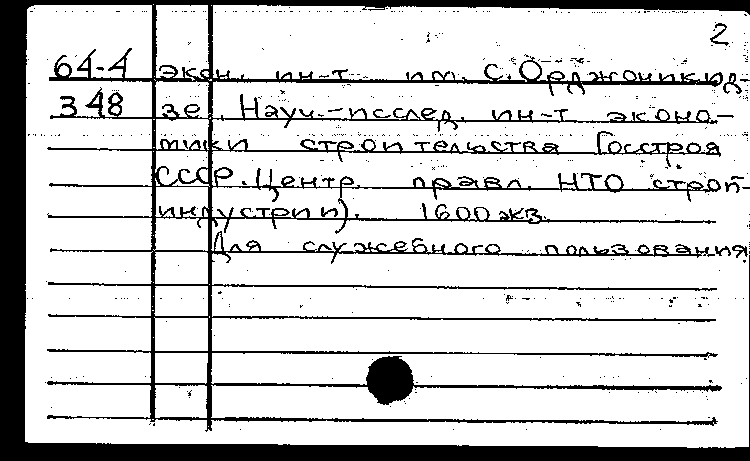 2
64-4 экон. ин-т им. С. Орджоникид-
348 зе. Науч.-исслед. ин-т эконо-
мики строительства Госстроя
СССР. Центр. правл. НТО строй-
индустрии). 1600 экз.
Для служебного пользования.